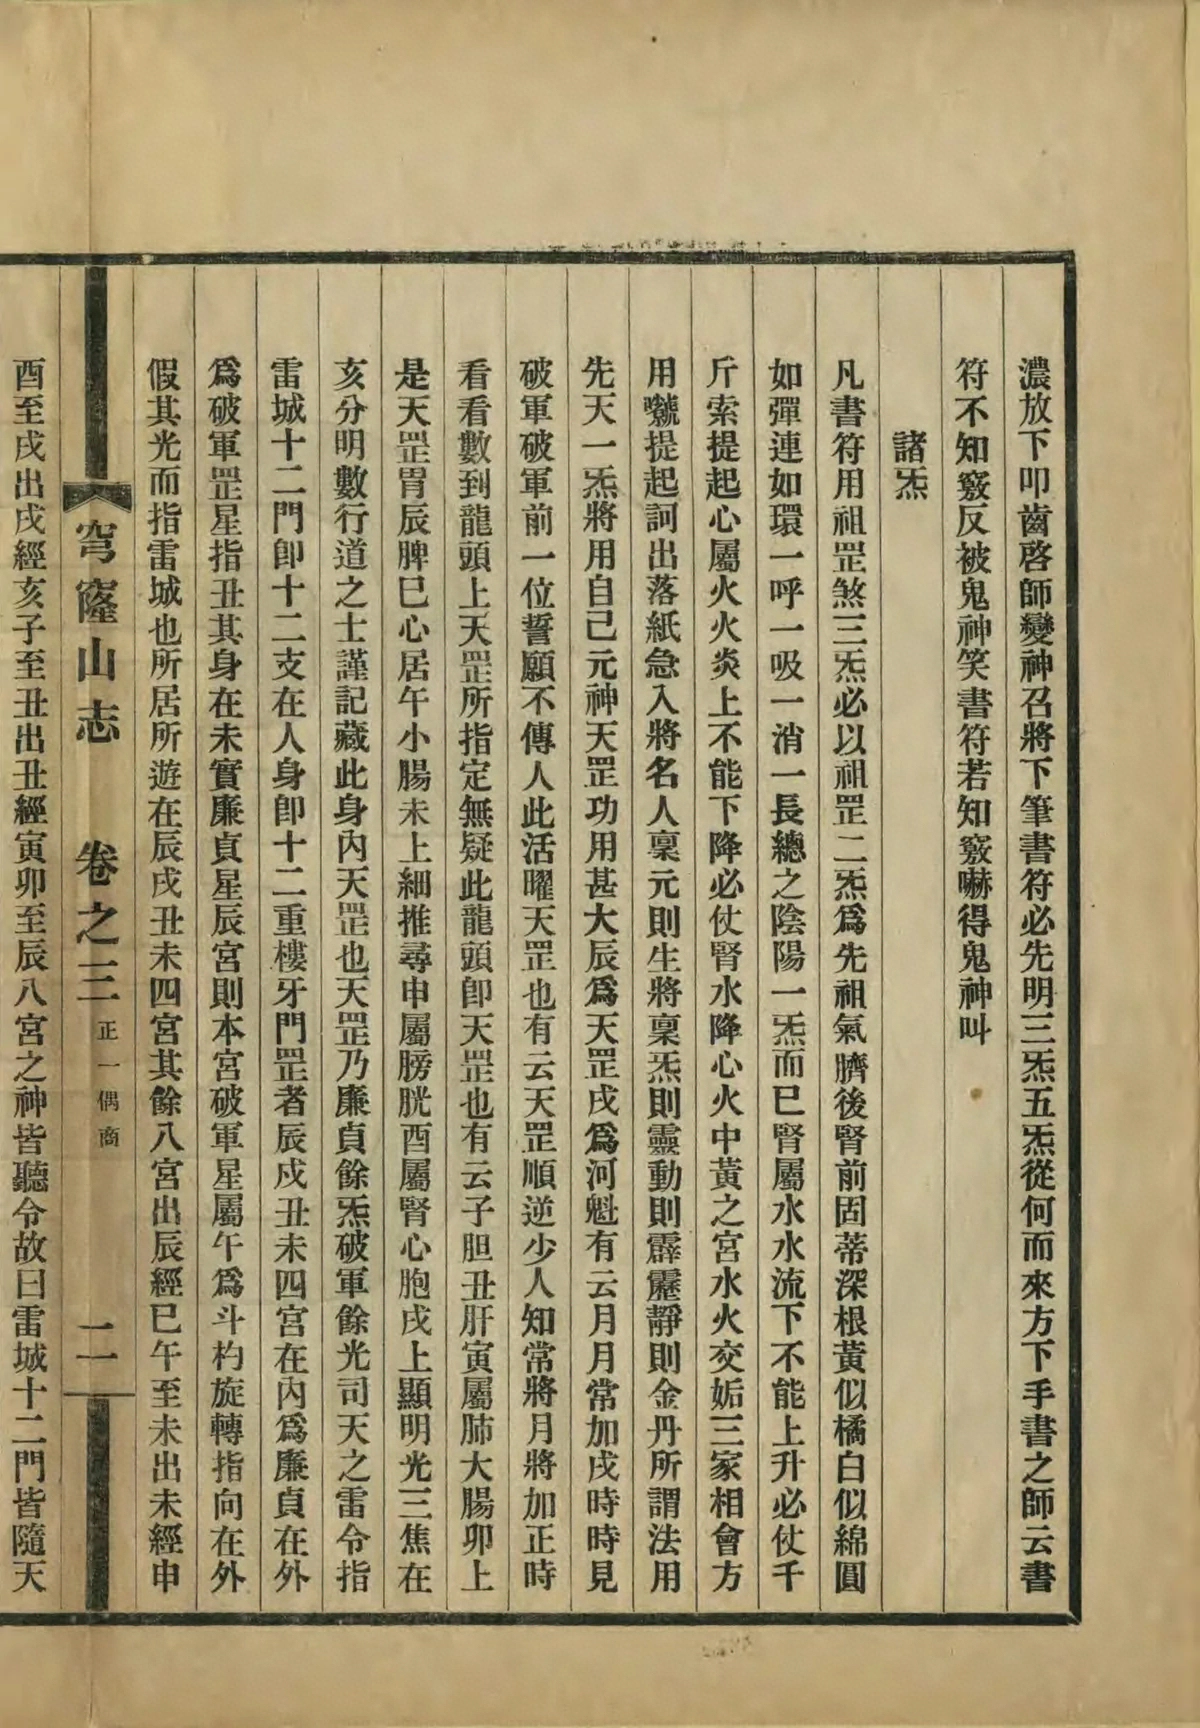 濃放下叩齒啓師變神召將下筆書符必先明三炁五炁從何而來方下手書之師云書
符不知竅反被鬼神笑書符若知竅嚇得鬼神叫
諸炁
凡書符用祖罡煞三炁必以祖罡二炁爲先祖氣臍後腎前固蒂深根黃似橘白似綿圓
如彈連如環一呼一吸一消一長總之陰陽一炁而已腎屬水水流下不能上升必仗千
斤索提起心屬火火炎上不能下降必仗腎水降心火中黃之宮水火交姤三家相會方
用毿提起訶出落紙急入將名人稟元則生將稟炁則靈動則霹靂靜則金丹所謂法用
先天一炁將用自己元神天罡功用甚大辰爲天罡戌爲河魁有云月月常加戌時時見
破軍破軍前一位誓願不傳人此活曜天罡也有云天罡順逆少人知常將月將加正時
看看數到龍頭上天罡所指定無疑此龍頭卽天罡也有云子胆丑肝寅屬肺大腸卯上
是天罡胃辰脾巳心居午小腸未上細推尋申屬膀胱酉屬腎心胞戌上顯明光三焦在
亥分明數行道之士謹記藏此身內天罡也天罡乃廉貞餘炁破軍餘光司天之雷令指
雷城十二門卽十二支在人身卽十二重樓牙門罡者辰戌丑未四宮在內爲廉貞在外
爲破軍罡星指丑其身在未實廉貞星辰宮則本宮破軍星屬午爲斗杓旋轉指向在外
假其光而指雷城也所居所遊在辰戌丑未四宮其餘八宮出辰經巳午至未出未經申
穹窿山志 卷之三 正一偶商 二
酉至戌出戌經亥子至丑出丑經寅卯至辰八宮之神皆聽令故曰雷城十二門皆隨天